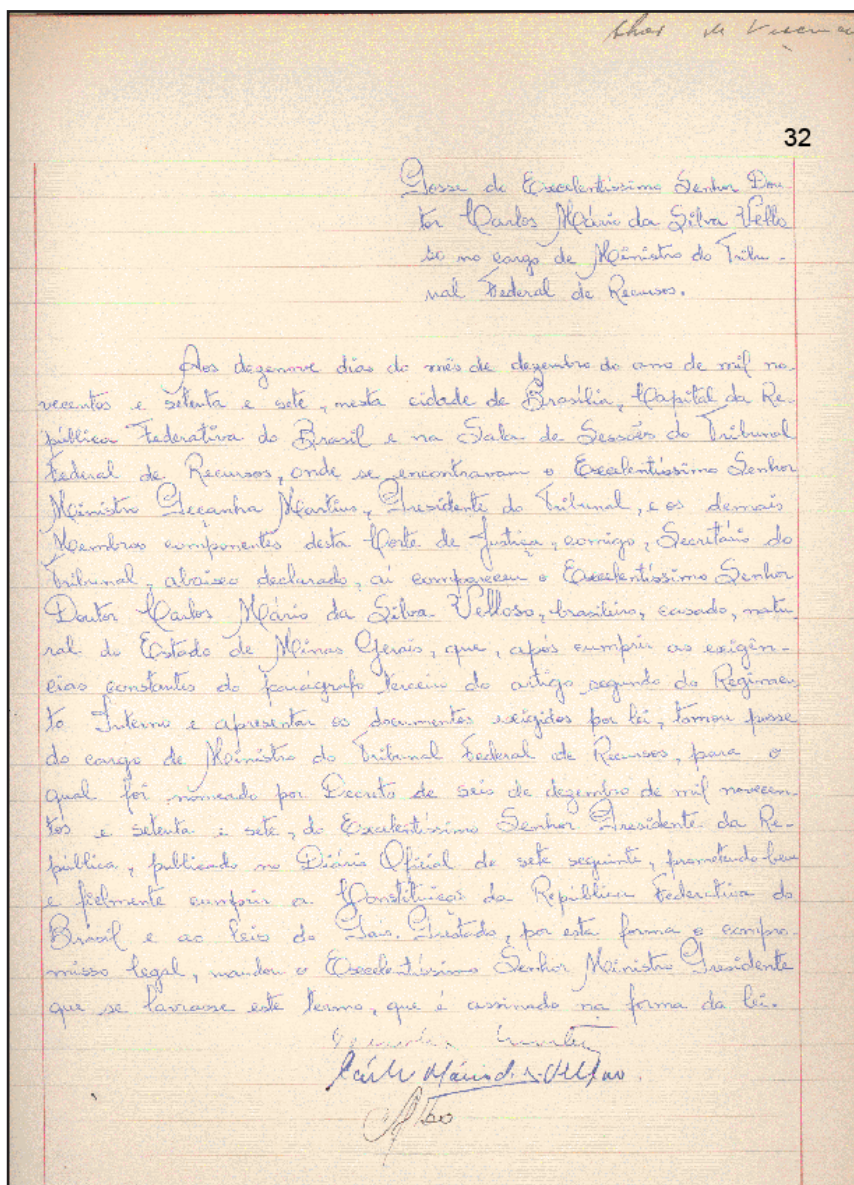 32
Posse do Excelentíssimo Senhor Dou-
tor Carlos Mário da Silva Vello
so no cargo de Ministro do Tribu-
nal Federal de Recursos.
Aos dezenove dias do mês de dezembro do ano de mil no-
vecentos e setenta e sete, nesta cidade de Brasília, Capital da Re-
pública Federativa do Brasil e na Sala de Sessões do Tribunal
Federal de Recursos, onde se encontravam o Excelentíssimo Senhor
Ministro Peçanha Martins, Presidente do Tribunal, e os demais
Membros componentes desta Corte de Justiça, comigo, Secretário do
Tribunal, abaixo declarado, aí compareceu o Excelentíssimo Senhor
Doutor Carlos Mário da Silva Velloso, brasileiro, casado, natu-
ral do Estado de Minas Gerais, que, após cumprir as exigên-
cias constantes do parágrafo terceiro do artigo segundo do Regimen
to Interno e apresentar os documentos exigidos por lei, tomou posse
do cargo de Ministro do Tribunal Federal de Recursos, para o
qual foi nomeado por Decreto de seis de dezembro de mil novecen-
tos e setenta e sete, do Excelentíssimo Senhor Presidente da Re-
pública, publicado no Diário Oficial de sete seguinte, prometendo bem
e fielmente cumprir a Constituição da República Federativa do
Brasil e as leis do País. Prestado, por esta forma o compro-
misso legal, mandou o Excelentíssimo Senhor Ministro Presidente
que se lavrasse este termo, que é assinado na forma da lei.